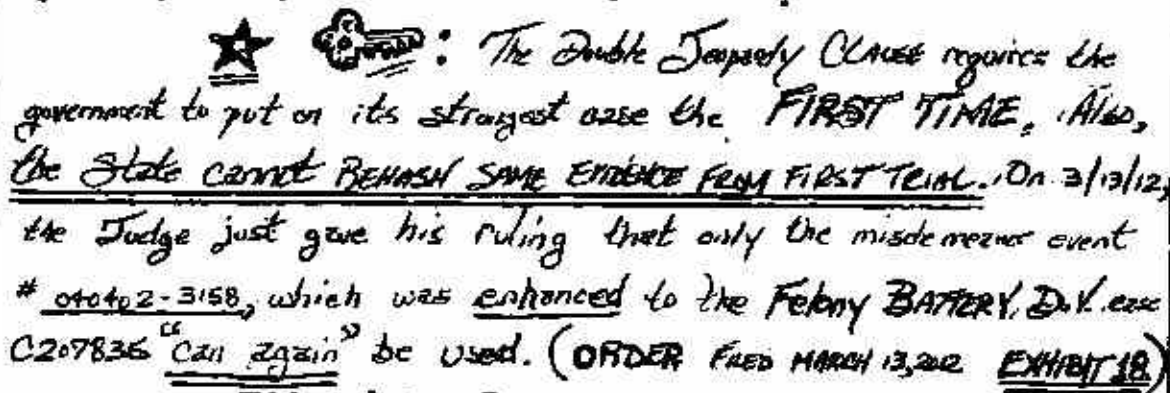 : The Double Jeopardy CLAUSE requires the
government to put on its strongest case the FIRST TIME. Also,
the State cannot REHASH SAME EVIDENCE FROM FIRST TRIAL. On 3/13/12,
the Judge just gave his ruling that only the misdemeanor event
# 040402-3158, which was enhanced to the Felony BATTERY, D.V. case
C207835 "can again" be used. (ORDER FILED MARCH 13, 2012 EXHIBIT 18)